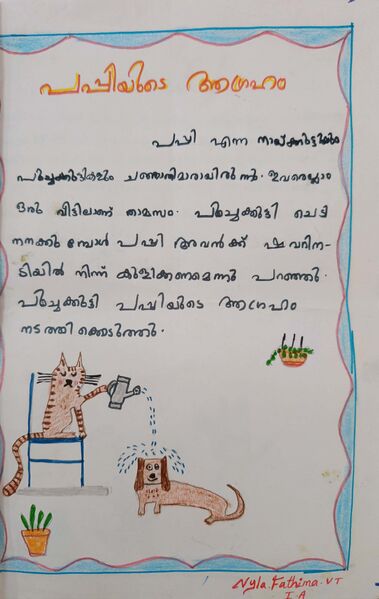 പപ്പിയുടെ ആഗ്രഹം
പപ്പി എന്ന നായ്ക്കുട്ടിയും
പൂച്ചക്കുട്ടികളും ചങ്ങാതിമാരായിരുന്നു. ഇവരെല്ലാം
ഒരു വീട്ടിലാണ് താമസം. പൂച്ചക്കുട്ടി ചെടി
നനക്കു മ്പോൾ പപ്പി അവൻക്ക് ഷവറിന-
ടിയിൽ നിന്ന് കുളിക്കണമെന്നു പറഞ്ഞു.
പൂച്ചക്കുട്ടി പപ്പിയുടെ ആഗ്രഹം
നടത്തി ക്കൊടുത്തു.
Nyla.Fathima.VT
I-A